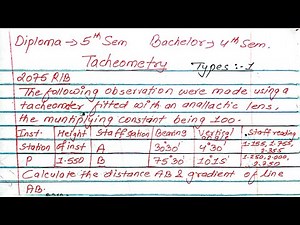 Diploma → 5th Sem Bachelor → 4th Sem.
Tacheometry Types :- 1
2075 R/B
The following observation were made using a
tacheometer fitted with an anallactic lens,
the muntiplying constant being 100.
Inst. Height Staff station Bearing Vertical Staff reading
Station of inst A 30°30' 4°30' 1.155, 1.755, 2.355
P 1.550 B 75°30' 10°15' 1.250, 2.000, 2.750
Calculate the distance AB & gradient of line
AB.